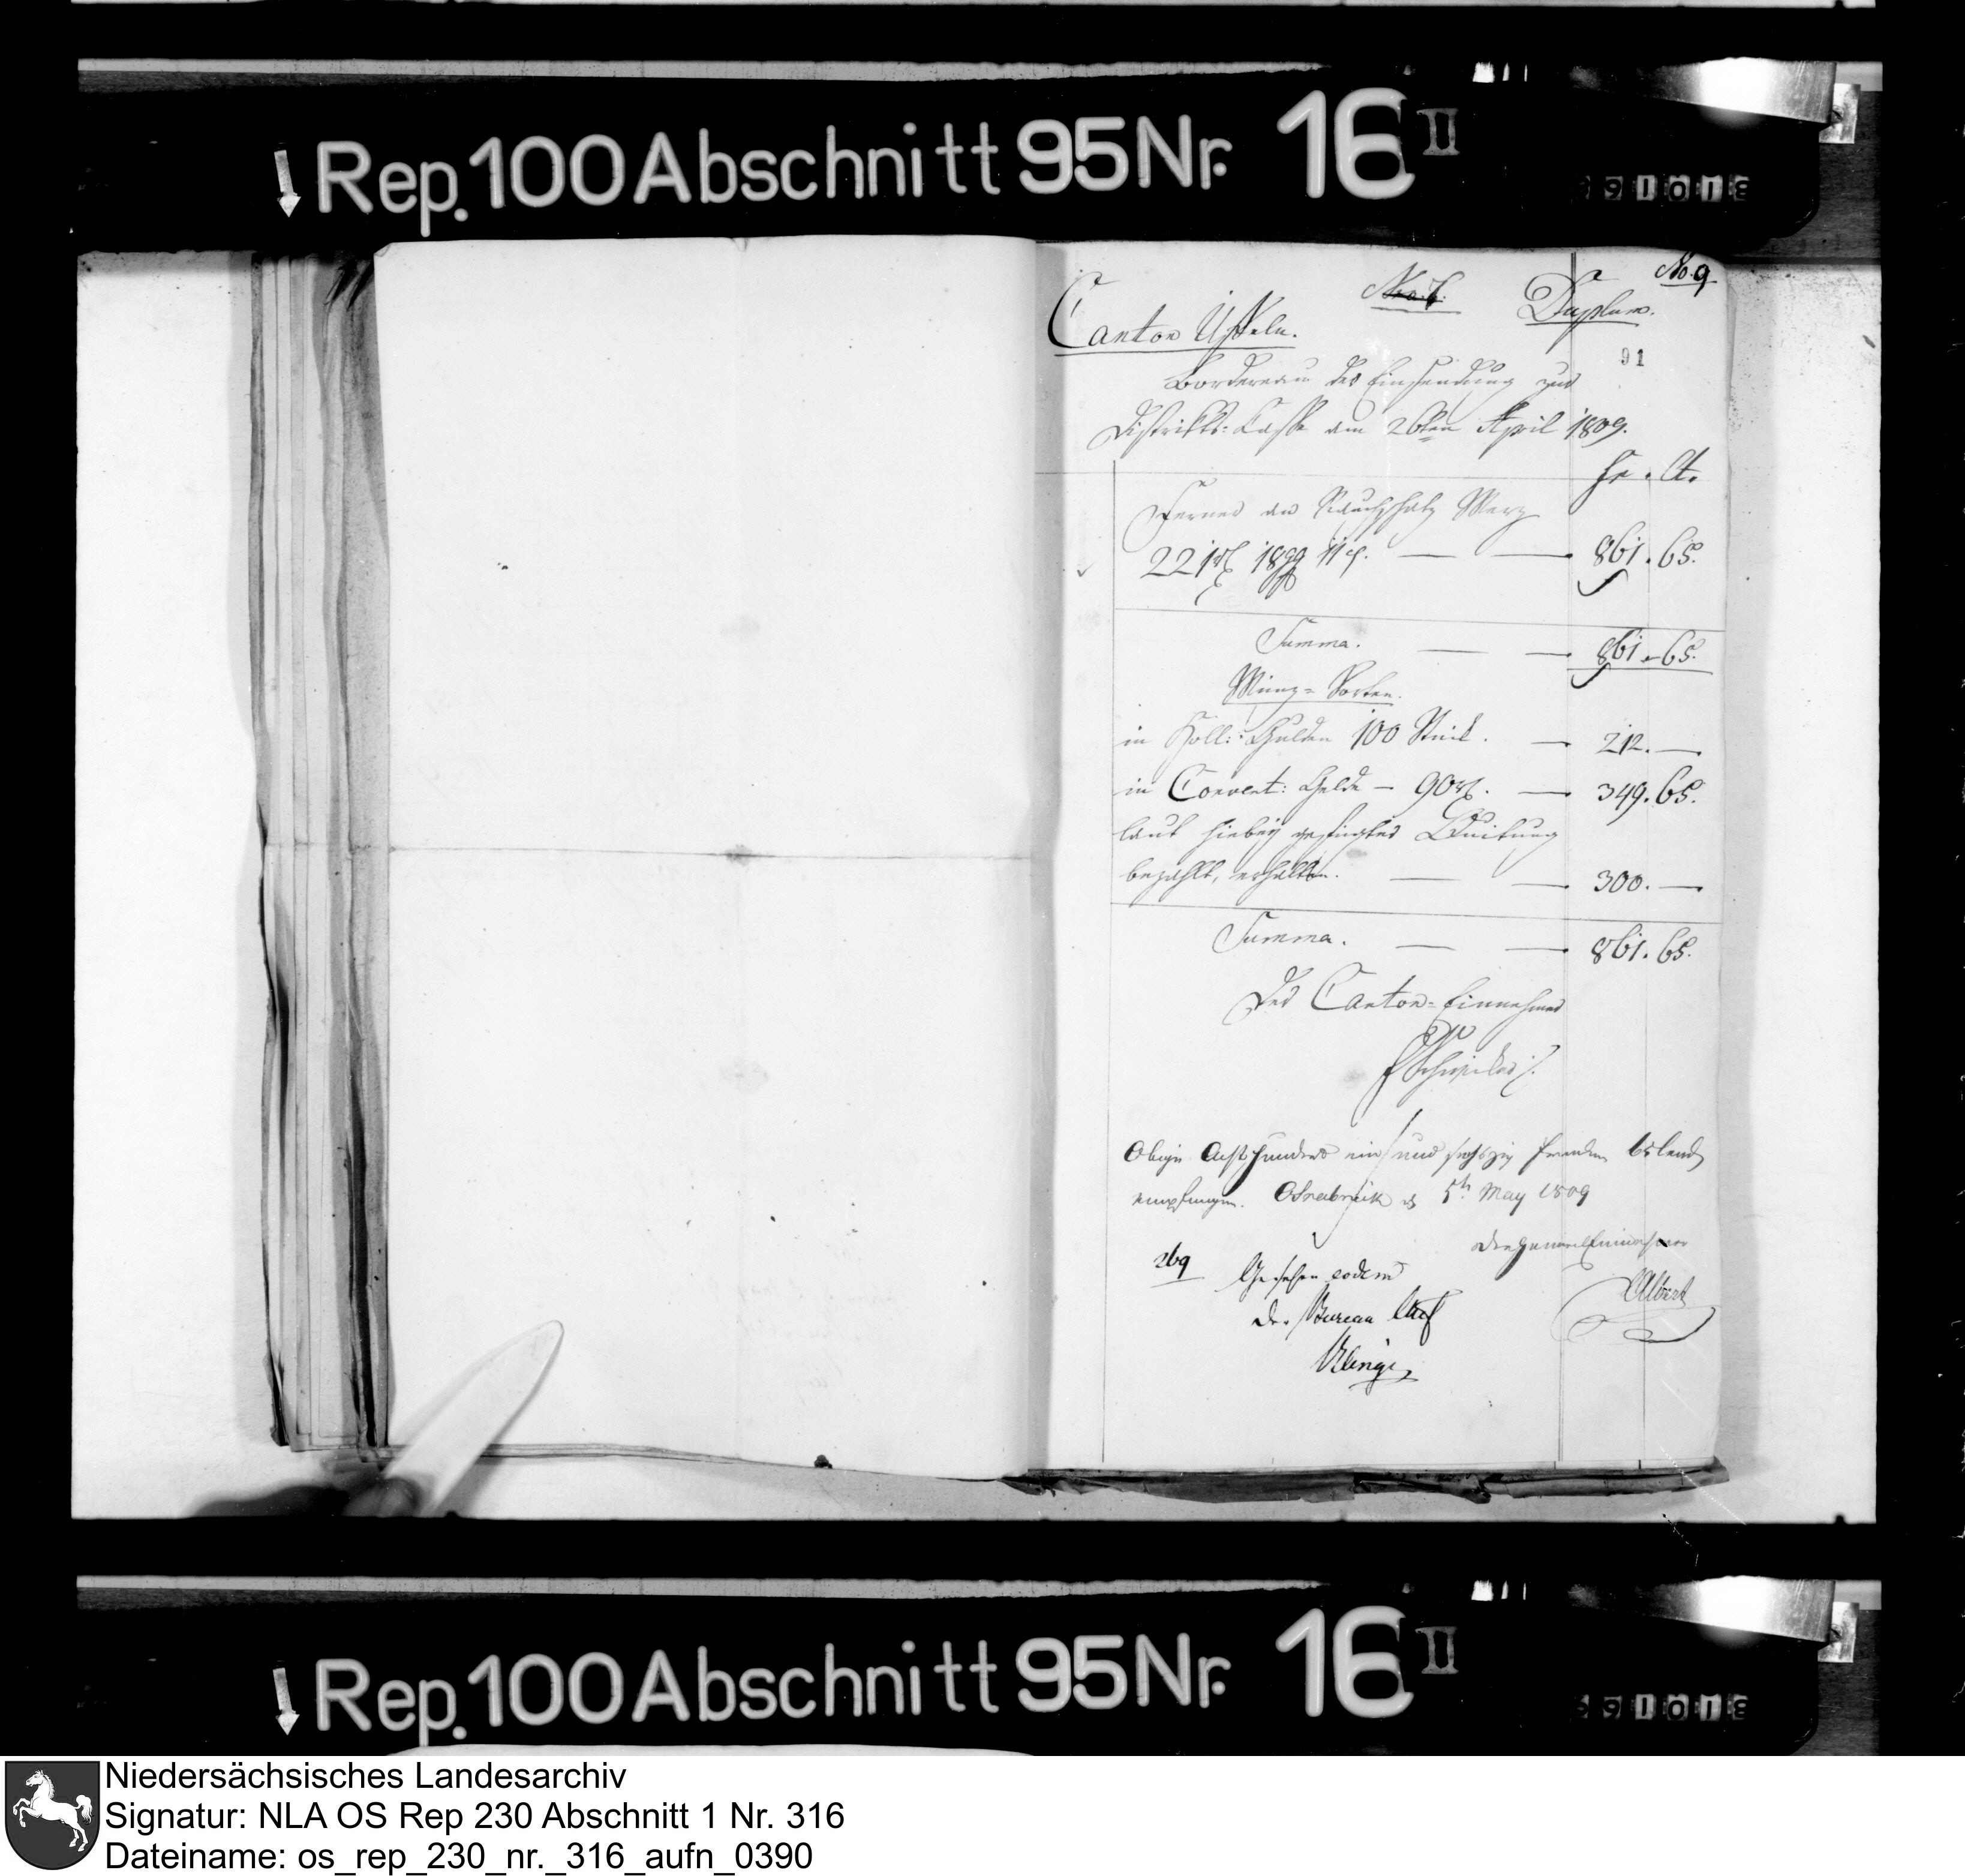 Rep. 100 Abschnitt 95 Nr. 16 II
No. 9
No. 6.
Duplum.
Canton Uffeln.
91
Bordereau der Einsendung zur
Distrikts-Casse am 26ten April 1809.
Fr. Ct.
Ferner an Rauchschatz Merz
221 rt 18 ggr 11 d. — — 861. 65.
Summa. — — 861. 65.
Münz-Sorten.
in Holl: Gulden 100 Stück. — 212. —
in Convent: Gelde — 90 rt. — 349. 65.
laut hiebey gefügter Quitung
bezahlt, erhalten. — — 300. —
Summa. — — 861. 65.
Der Canton-Einnehmer
Obige Achthundert ein und sechszig Franken 65 Cent
empfangen. Osnabrück d 5t May 1809
Der General Einnehmer
Albert
269
Gesehen eodem
Der Bureau Chef
Rep. 100 Abschnitt 95 Nr. 16 II
Niedersächsisches Landesarchiv
Signatur: NLA OS Rep 230 Abschnitt 1 Nr. 316
Dateiname: os_rep_230_nr._316_aufn_0390